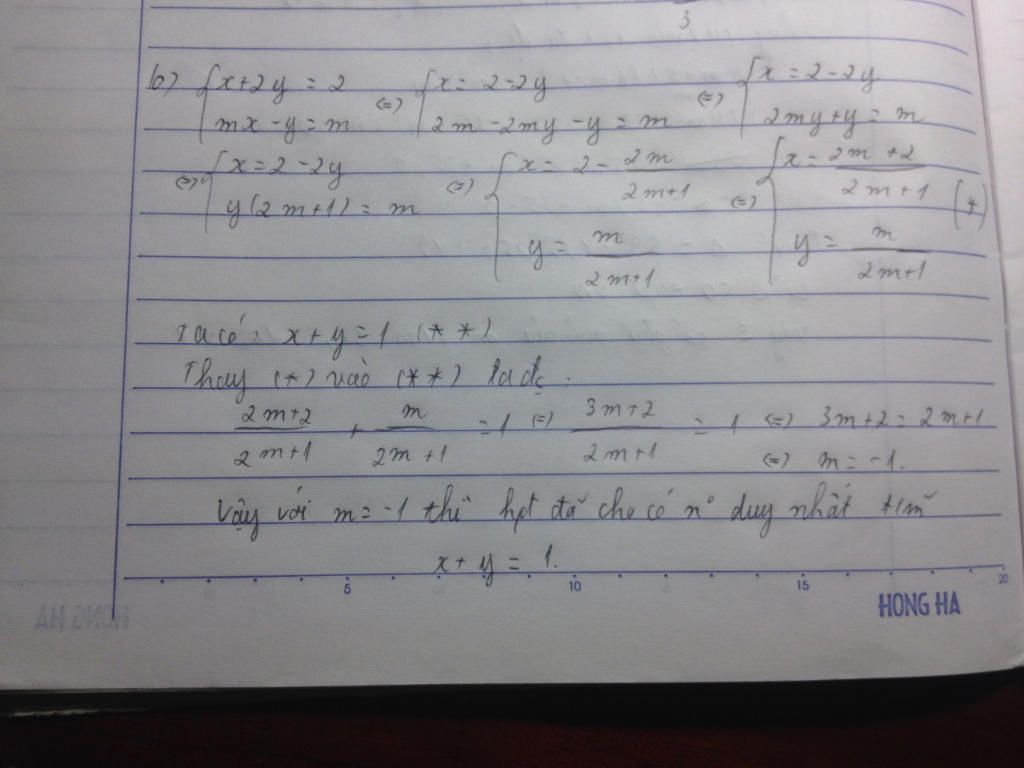 3
b) { x+2y = 2 <=> { x = 2-2y <=> { x = 2-2y
mx-y = m 2m-2my-y = m 2my+y = m
<=> { x = 2-2y <=> { x = 2 - 2m/2m+1 <=> { x = 2m+2/2m+1 (*)
y(2m+1) = m y = m/2m+1 y = m/2m+1
Ta có: x+y = 1 (**)
Thay (*) vào (**) ta đc:
2m+2/2m+1 + m/2m+1 = 1 <=> 3m+2/2m+1 = 1 <=> 3m+2 = 2m+1
<=> m = -1.
Vậy với m = -1 thì hpt đã cho có n° duy nhất t/m
x+y = 1.
5 10 15 20
HONG HA